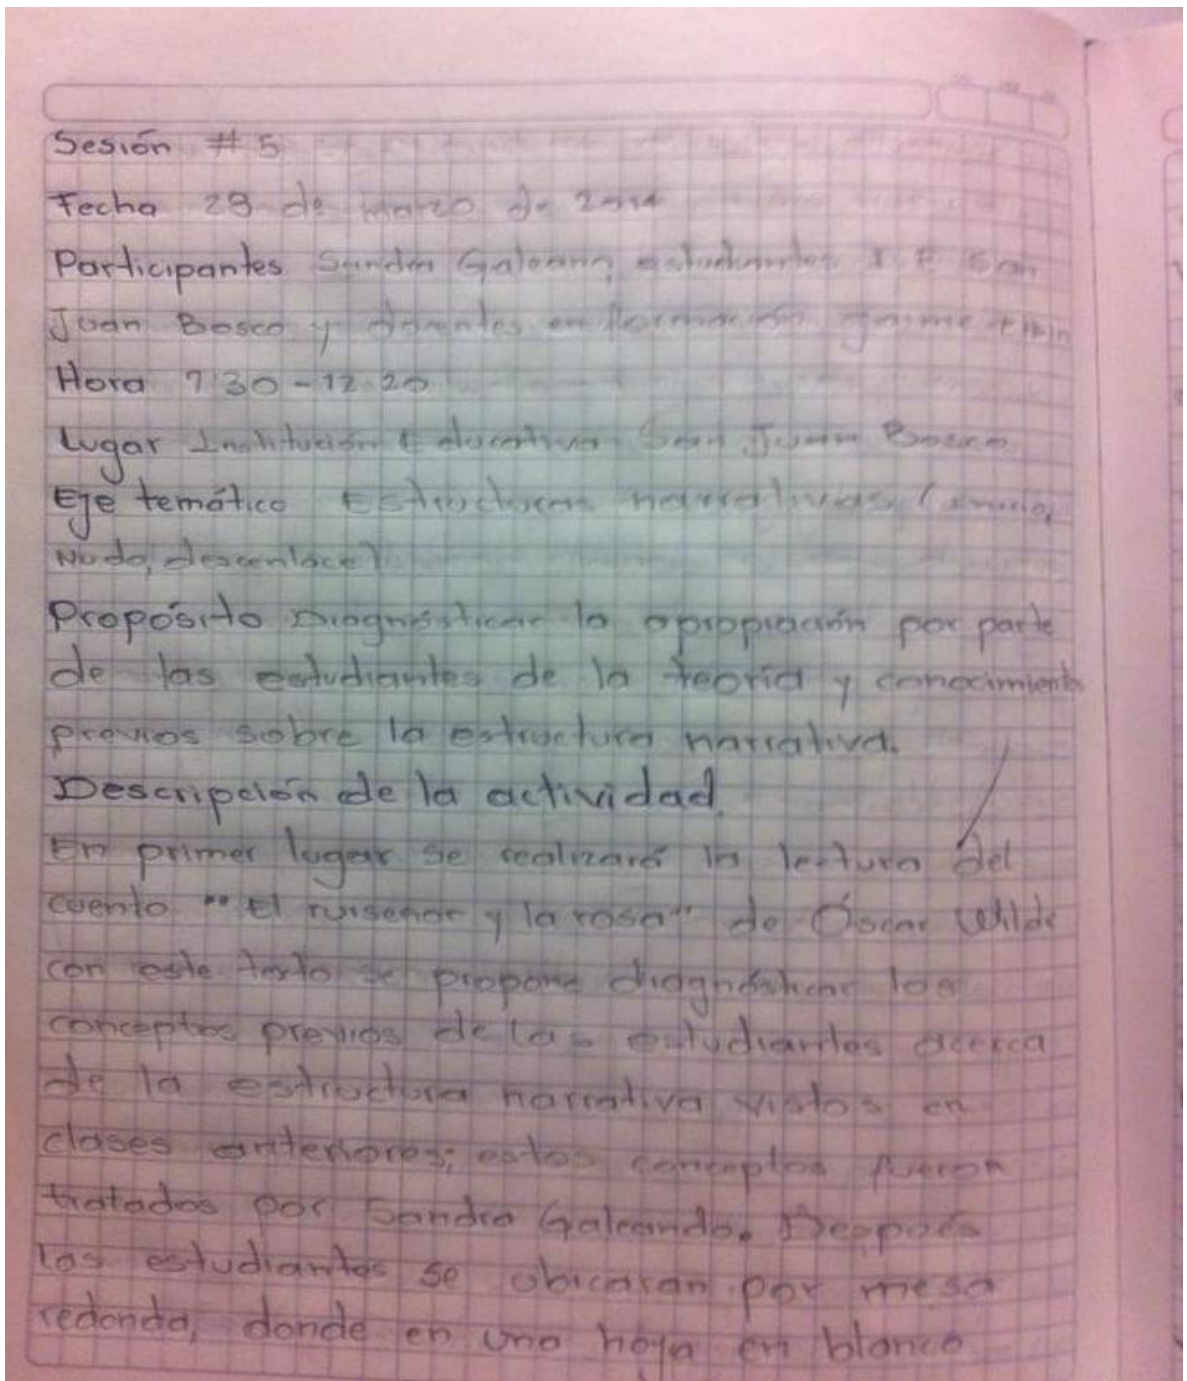 Sesión # 5
Fecha 28 de marzo de 2014
Participantes Sandra Galeano, estudiantes I.E San
Juan Bosco y docentes en formación
Hora 7:30 - 12:20
Lugar Institución Educativa San Juan Bosco
Eje temático Estructuras narrativas (inicio,
Nudo, desenlace)
Propósito Diagnósticar la apropiación por parte
de las estudiantes de la teoría y conocimientos
previos sobre la estructura narrativa.
Descripción de la actividad.
En primer lugar se realizará la lectura del
cuento "El ruiseñor y la rosa" de Óscar Wilde
con este texto se propone diagnósticar los
conceptos previos de las estudiantes acerca
de la estructura narrativa vistos en
clases anteriores; estos conceptos fueron
tratados por Sandra Galeando. Después
las estudiantes se ubicaran por mesa
redonda, donde en una hoja en blanco